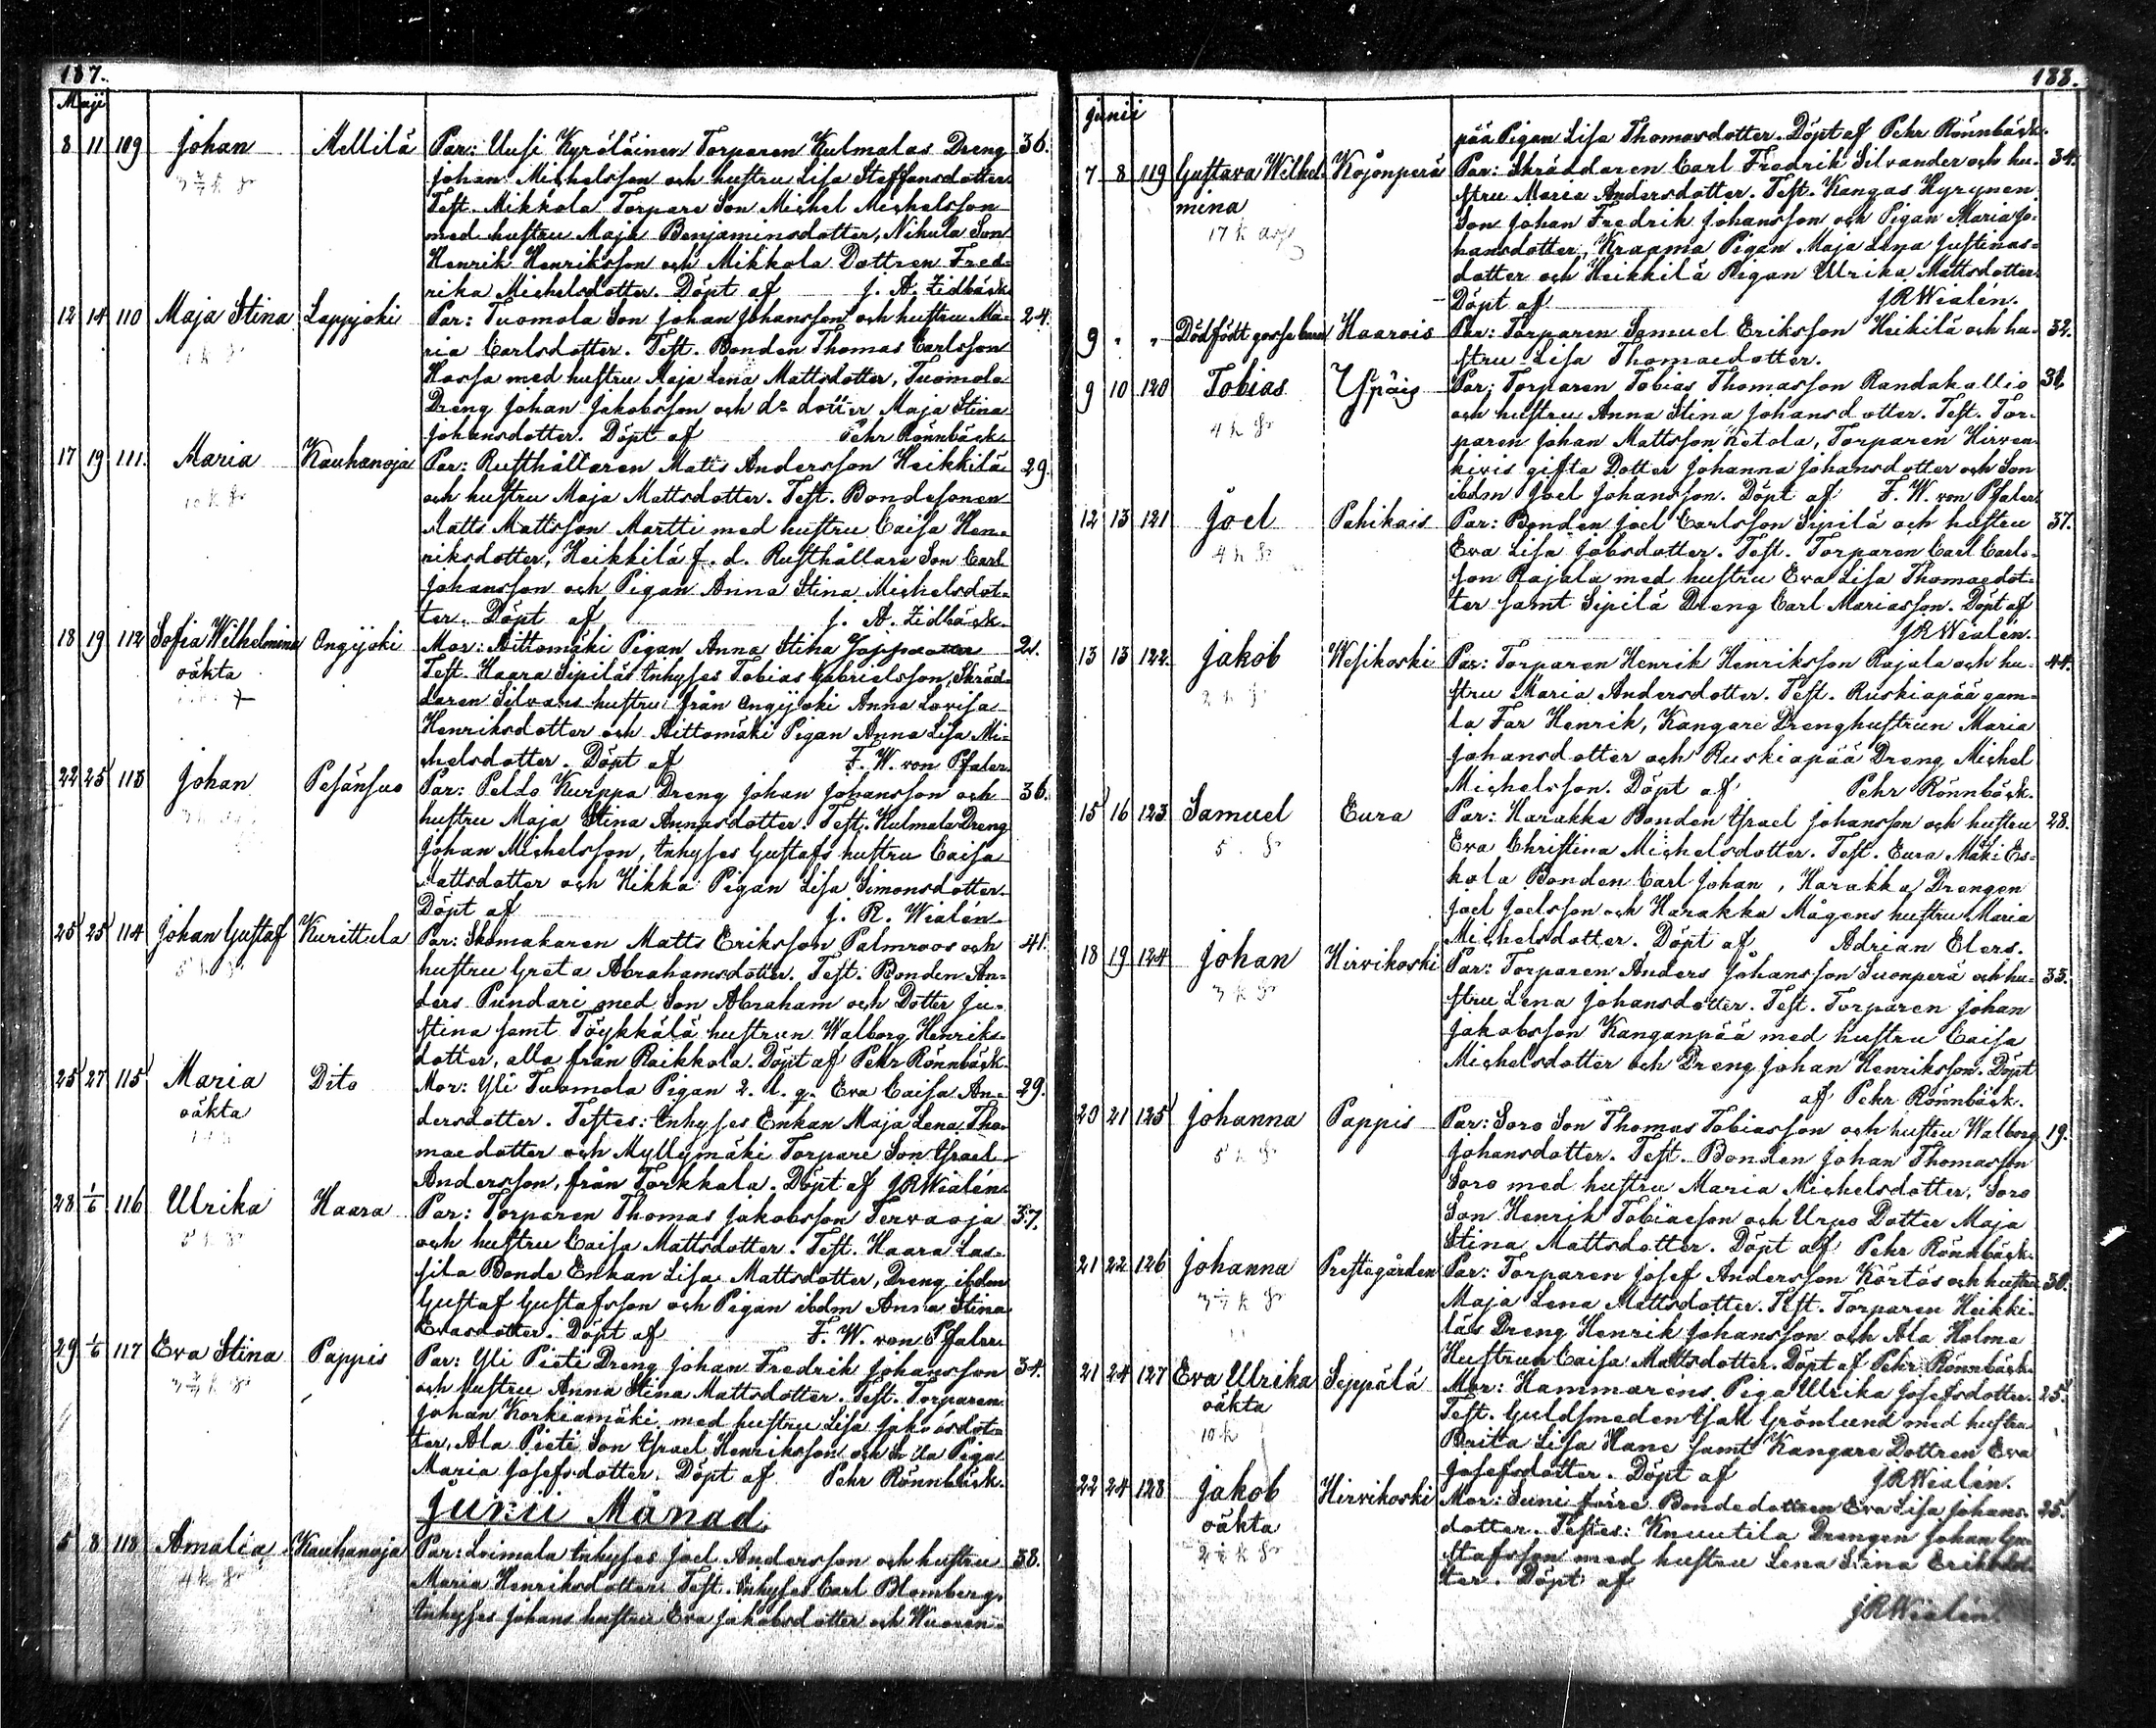 187.
Maji
8 11 109 Johan Mellilä Par: Uusi Kyröläinen Torparen Kulmalas Dreng 36.
Johan Michelsson och hustru Lisa Steffansdotter
Test. Mikkola Torpare Son Michel Michelsson
med hustru Maja Benjaminsdotter, Nikula Son
Henrik Henriksson och Mikkola Dottren Fred-
rika Michelsdotter. Döpt af J. A. Zidbäck
12 14 110 Maja Stina Lappijoki Par: Tuomola Son Johan Johansson och hustru Ma- 24.
ria Carlsdotter. Test. Bonden Thomas Carlsson
Hossa med hustru Maja Lena Mattsdotter, Tuomola
Dreng Johan Jakobsson och do dotter Maja Stina
Johansdotter. Döpt af Pehr Rönnbäck
17 19 111. Maria Kauhanoja Par: Rusthållaren Matts Andersson Heikkilä 29.
och hustru Maja Mattsdotter. Test. Bondesonen
Matts Mattsson Martti med hustru Caisa Hen-
riksdotter, Heikkilä f. d. Rusthållare Son Carl
Johansson och Pigan Anna Stina Michelsdot-
ter. Döpt af J. A. Zidbäck.
18 19 112 Sofia Wilhelmina Ongijoki Mor: Aittomäki Pigan Anna Stina 21.
oäkta Test. Haara Sipiläs Inhyses Tobias Gabrielsson, Skräd-
daren Silvans hustru från Ongijoki Anna Lovisa
Henriksdotter och Aittomäki Pigan Anna Lisa Mi-
chelsdotter. Döpt af F. W. von Pfaler
22 25 113 Johan Pesänsuo Par: Peldo Kurppa Dreng Johan Johansson och 36.
hustru Maja Stina Annasdotter. Test. Kulmala Dreng
Johan Michelsson, Inhyses Gustafs hustru Caisa
Mattsdotter och Hikka Pigan Lisa Simonsdotter
Döpt af J. R. Wialén
25 25 114 Johan Gustaf Kurittula Par: Skomakaren Matts Eriksson Palmroos och 41.
hustru Greta Abrahamsdotter. Test. Bonden An-
ders Pundari med Son Abraham och Dotter Ju-
stina samt Töykkälä hustrun Walborg Henriks-
dotter, alla från Raikkola. Döpt af Pehr Rönnbäck
25 27 115 Maria Dito Mor: Yli Tuomola Pigan 2. l. g. Eva Caisa An- 29.
oäkta dersdotter. Testes: Inhyses Enkan Maja Lena Tho-
maedotter och Myllymäki Torpare Son Israel
Andersson, från Torkkala. Döpt af J R Wialén
28 1/6 116 Ulrika Haara Par: Torparen Thomas Jakobsson Tervaoja 37.
och hustru Caisa Mattsdotter. Test. Haara Las-
sila Bonde Enkan Lisa Mattsdotter, Dreng ibdm
Gustaf Gustafsson och Pigan ibdm Anna Stina
Evasdotter. Döpt af F. W. von Pfaler
29 1/6 117 Eva Stina Pappis Par: Yli Pieti Dreng Johan Fredrik Johansson 34.
och hustru Anna Stina Mattsdotter. Test. Torparen
Johan Korkiamäki med hustru Lisa Jakobsdot-
ter, Ala Pieti Son Israel Henriksson och Piga
Maria Josefsdotter. Döpt af Pehr Rönnbäck.
Junii Månad.
5 8 118 Amalia Kauhanoja Par: Loimala Inhyses Joel Andersson och hustru 38.
4 k Maria Henriksdotter. Test. Inhyses Carl Blomberg,
Inhyses Johans hustru Eva Jakobsdotter och Wuoren-
188.
Junii
pää Pigan Lisa Thomasdotter. Döpt af Pehr Rönnbäck.
7 8 119 Gustava Wilhel- Kojonperä Par: Skräddaren Carl Fredrik Silvander och hu- 34.
mina stru Maria Andersdotter. Test. Kangas Kyrynen
17 k Son Johan Fredrik Johansson och Pigan Maria Jo-
hansdotter, Kraama Pigan Maja Lena Justinas-
dotter och Heikkilä Pigan Ulrika Mattsdotter.
Döpt af J R Wialén.
9 " " Dödfödt gosse barn Haarois Par: Torparen Samuel Eriksson Heikilä och hu- 32.
stru Lisa Thomaedotter.
9 10 120 Tobias Ypäis Par: Torparen Tobias Thomasson Randakallio 31.
4 k och hustru Anna Stina Johansdotter. Test. Tor-
paren Johan Mattsson Ketola, Torparen Hirven-
kivis gifta Dotter Johanna Johansdotter och Son
ibdm Joel Johansson. Döpt af F. W. von Pfaler
12 13 121 Joel Pahikais Par: Bonden Joel Carlsson Sipilä och hustru 37.
4 k Eva Lisa Jobsdotter. Test. Torparen Carl Carls-
son Rajala med hustru Eva Lisa Thomaedot-
ter samt Sipilä Dreng Carl Mariasson. Döpt af
J R Wialén.
13 13 122. Jakob Wesikoski Par: Torparen Henrik Henriksson Rajala och hu- 44.
2 k stru Maria Andersdotter. Test. Ruskiapää gam-
la Far Henrik, Kangare Drenghustrun Maria
Johansdotter och Ruskiapää Dreng Michel
Michelsson. Döpt af Pehr Rönnbäck.
15 16 123 Samuel Eura Par: Harakka Bonden Israel Johansson och hustru 28.
5 Eva Christina Michelsdotter. Test. Eura Mäki Es-
kola Bonden Carl Johan, Harakka Drengen
Joel Joelsson och Harakka Mågens hustru Maria
Michelsdotter. Döpt af Adrian Elers.
18 19 124 Johan Hirvikoski Par: Torparen Anders Johansson Suonperä och hu- 33.
3 k stru Lena Johansdotter. Test. Torparen Johan
Jakobsson Kanganpää med hustru Caisa
Michelsdotter och Dreng Johan Henriksson. Döpt
af Pehr Rönnbäck.
20 21 125 Johanna Pappis Par: Soro Son Thomas Tobiasson och hustru Walborg 19.
5 k Johansdotter. Test. Bonden Johan Thomasson
Soro med hustru Maria Michelsdotter, Soro
Son Henrik Tobiaesson och Urpo Dotter Maja
Stina Mattsdotter. Döpt af Pehr Rönnbäck.
21 22 126 Johanna Prestegården Par: Torparen Josef Andersson Körtös och hustru 30.
Maja Lena Mattsdotter. Test. Torparen Heikki-
läs Dreng Henrik Johansson och Ala Holma
Hustrun Caisa Mattsdotter. Döpt af Pehr Rönnbäck
21 24 127 Eva Ulrika Seppälä Mor: Hammarens Piga Ulrika Josefsdotter. 25.
oäkta Test. Guldsmeden Isak Grönlund med hustru
10 k Brita Lisa Hane samt Kangare Dottren Eva
Josefsdotter. Döpt af J R Wialén.
22 24 128 Jakob Hirvikoski Mor: Suni förre Bondedottren Eva Lisa Johans- 25.
oäkta dotter. Testes: Knuutila Drengen Johan Gu-
stafsson med hustru Lena Stina Eriksdot-
ter. Döpt af
J R Wialén